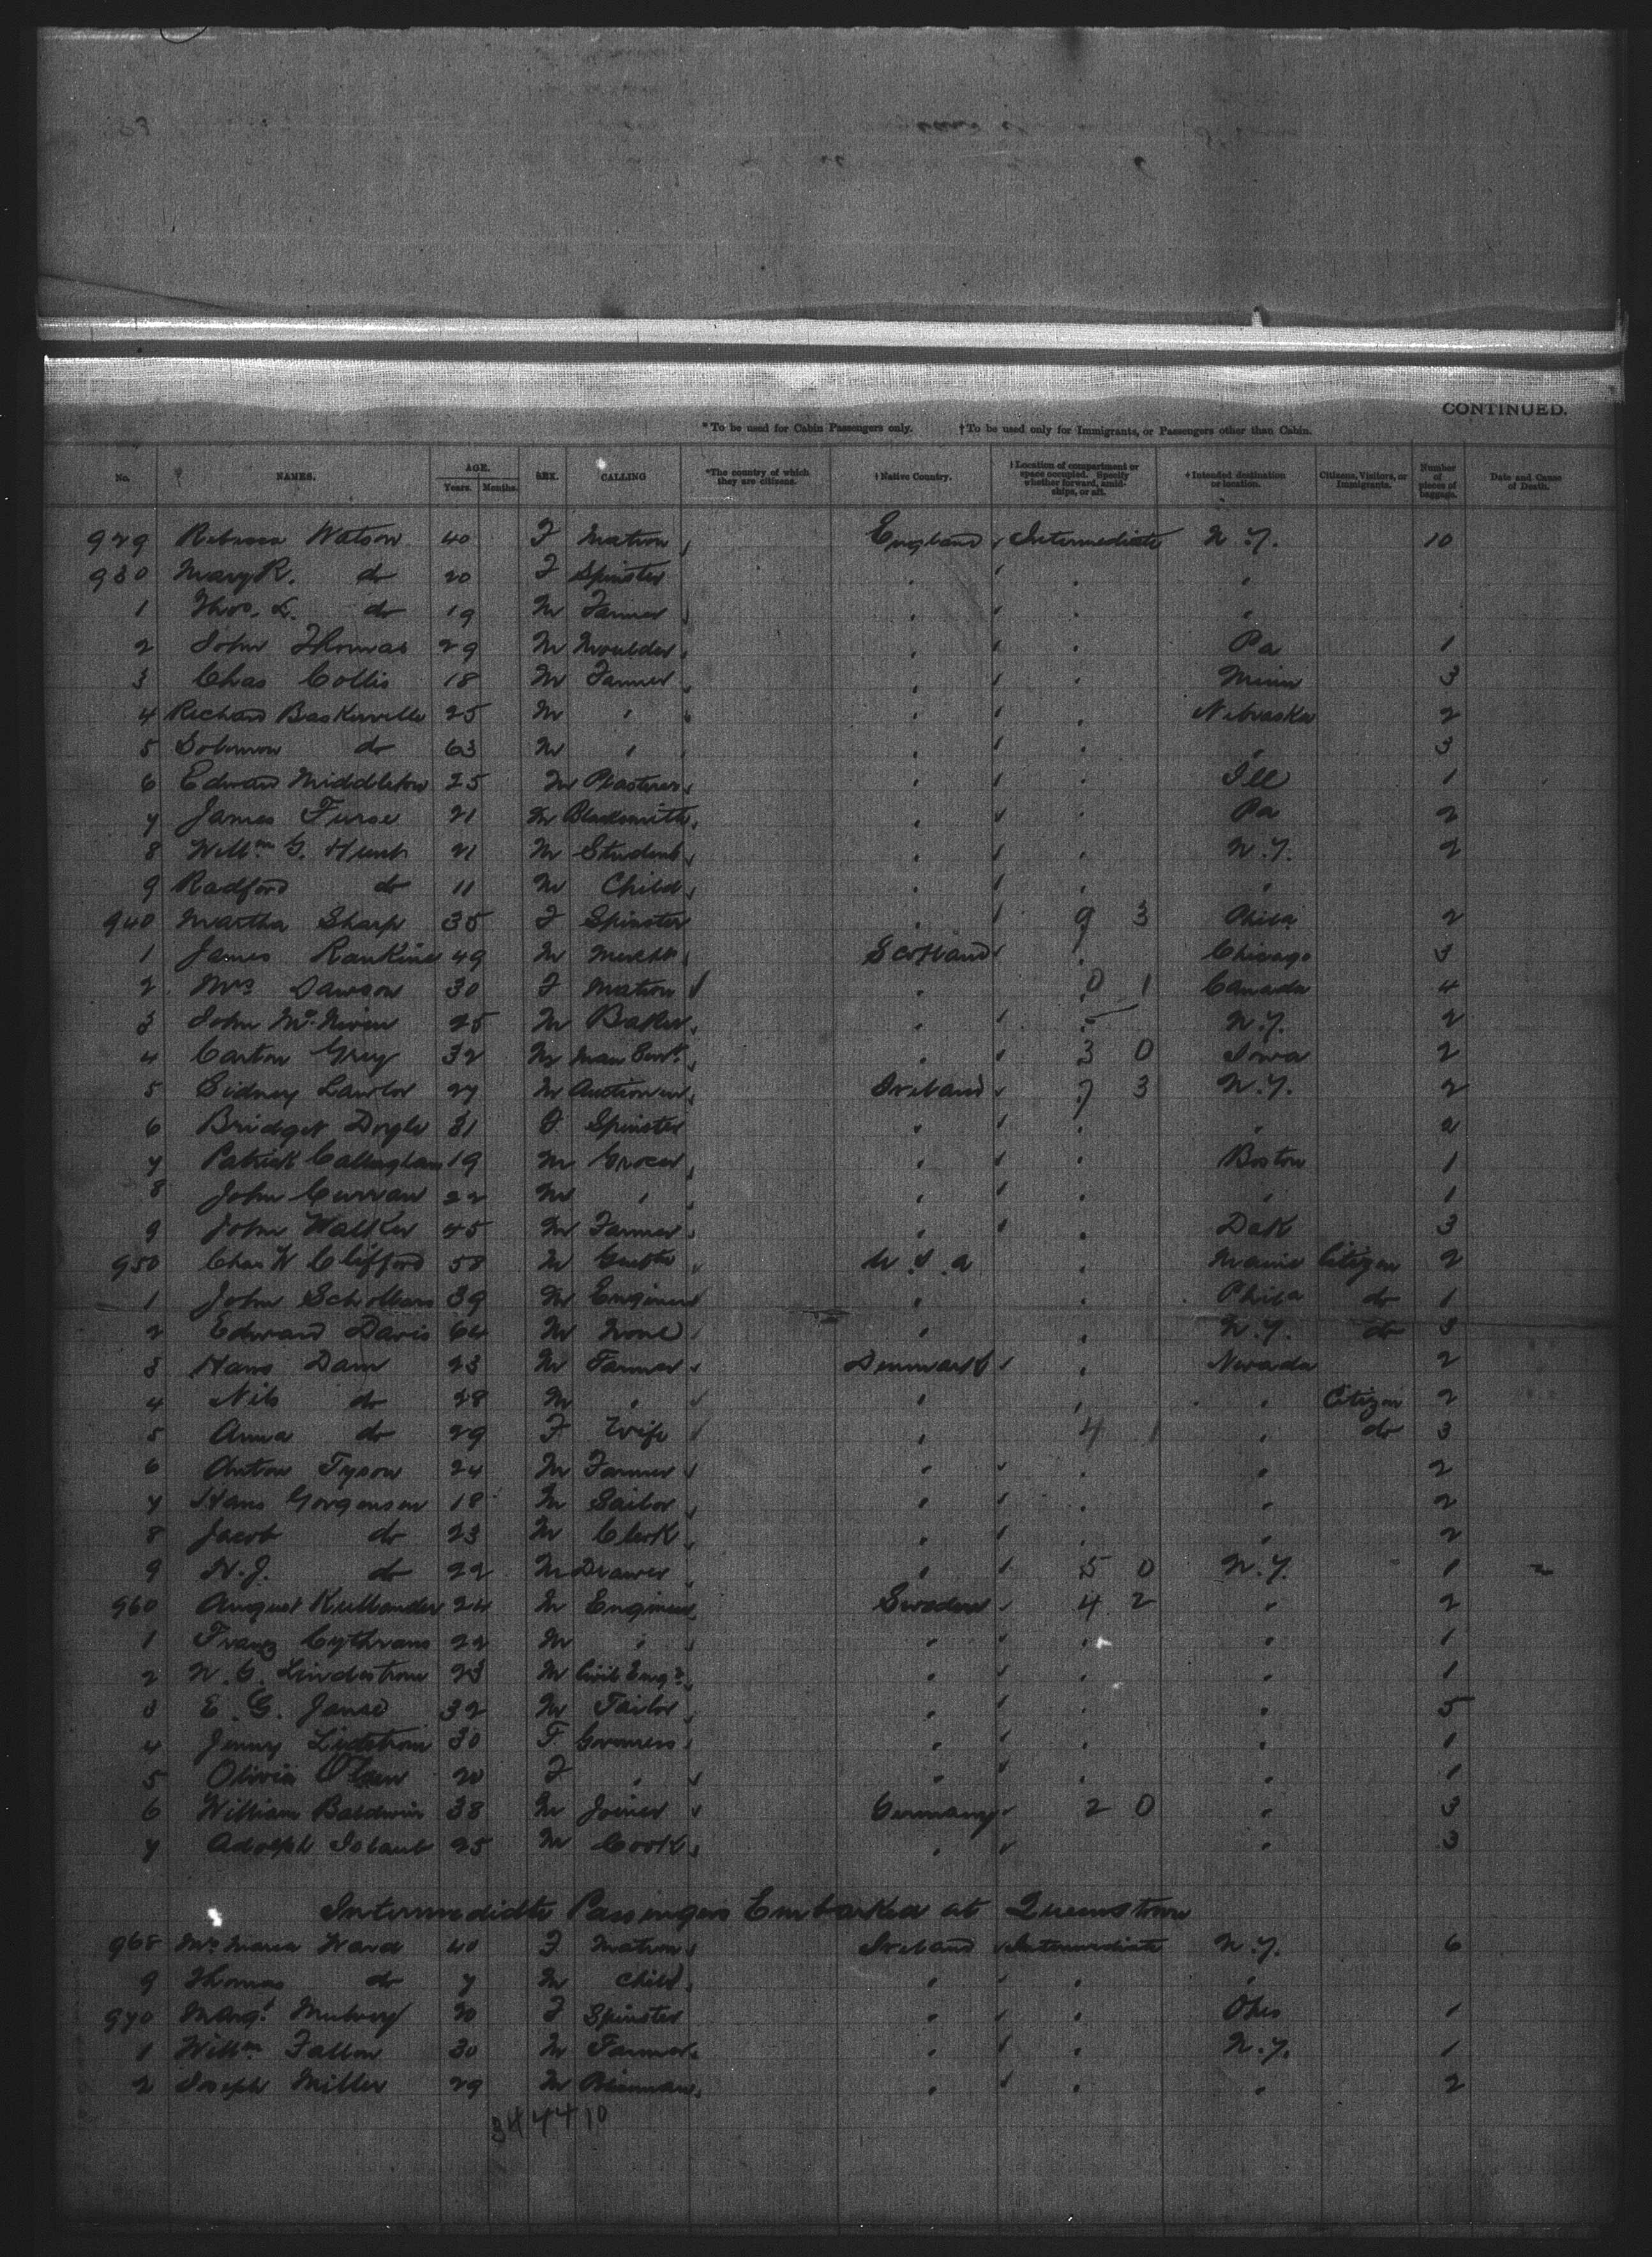 CONTINUED.
*To be used for Cabin Passengers only. †To be used only for Immigrants, or Passengers other than Cabin.
No. NAMES. AGE. Years. Months. SEX. CALLING *The country of which they are citizens. †Native Country. †Location of compartment or space occupied. Specify whether forward, amidships, or aft. †Intended destination or location. Citizens, Visitors, or Immigrants. Number of pieces of baggage. Date and Cause of Death.
929 Rebecca Watson 40 F Matron England Intermediate N.Y. 10
930 Mary R. do 20 F Spinster
1 Thos. L. do 19 M Farmer
2 John Thomas 29 M Moulder Pa 1
3 Chas Collis 18 M Farmer Minn 3
4 Richard Baskerville 25 M " Nebraska 2
5 Solomon do 63 M " " 3
6 Edward Middleton 25 M Plasterer Ill 1
7 James Furse 21 M Blacksmith Pa 2
8 Willm G. Hunt 21 M Student N.Y. 2
9 Radford do 11 M Child "
940 Martha Sharp 35 F Spinster 9 3 Phila 2
1 James Rankine 49 M Mercht Scotland Chicago 3
2 Mrs Dawson 30 F Matron 0 1 Canada 4
3 John McNiven 25 M Baker N.Y. 2
4 Carton Grey 32 M Man Servt 3 0 Iowa 2
5 Sidney Lawlor 27 M Ireland 7 3 N.Y. 2
6 Bridget Doyle 31 F Spinster " 2
7 Patrick Callaghan 19 M Grocer Boston 1
8 John Curran 22 M " " 1
9 John Walker 45 M Farmer Dak 3
950 Chas W Clifford 58 M U.S.A Maine Citizen 2
1 John 39 M Engineer " Phila do 1
2 Edward Davis 64 M None " N.Y. do 3
3 Hans Dam 23 M Farmer Denmark Nevada 2
4 Nils do 28 M " " " Citizen 2
5 Anna do 29 F Wife " 4 1 " do 3
6 Anton Tyson 24 M Farmer " " 2
7 Hans Gorgensen 18 M Sailor " " 2
8 Jacob do 23 M Clerk " " 2
9 do 22 M Drawer " 5 0 N.Y. 1
960 August Kullander 24 M Engineer Sweden 4 2 " 2
1 Franz 22 M " " " 1
2 N.G. Lindestrom 23 M Civil Engr " " 1
3 E. G. Janse 32 M Tailor " " 5
4 Jenny Lidstrom 30 F Governess " " 1
5 Olivia Olsen 20 F " " " 1
6 William Baldwin 38 M Joiner Germany 2 0 " 3
7 Adolph 25 M Cook " " 3
Intermediate Passengers Embarked at Queenstown
968 Mrs Maria Ward 40 F Matron Ireland Intermediate N.Y. 6
9 Thomas do 7 M Child " " "
970 Margt Mulvey 20 F Spinster " " Ohio 1
1 Willm Fallon 30 M Farmer " " N.Y. 1
2 Joseph Miller 29 M " " " 2
34 44 10